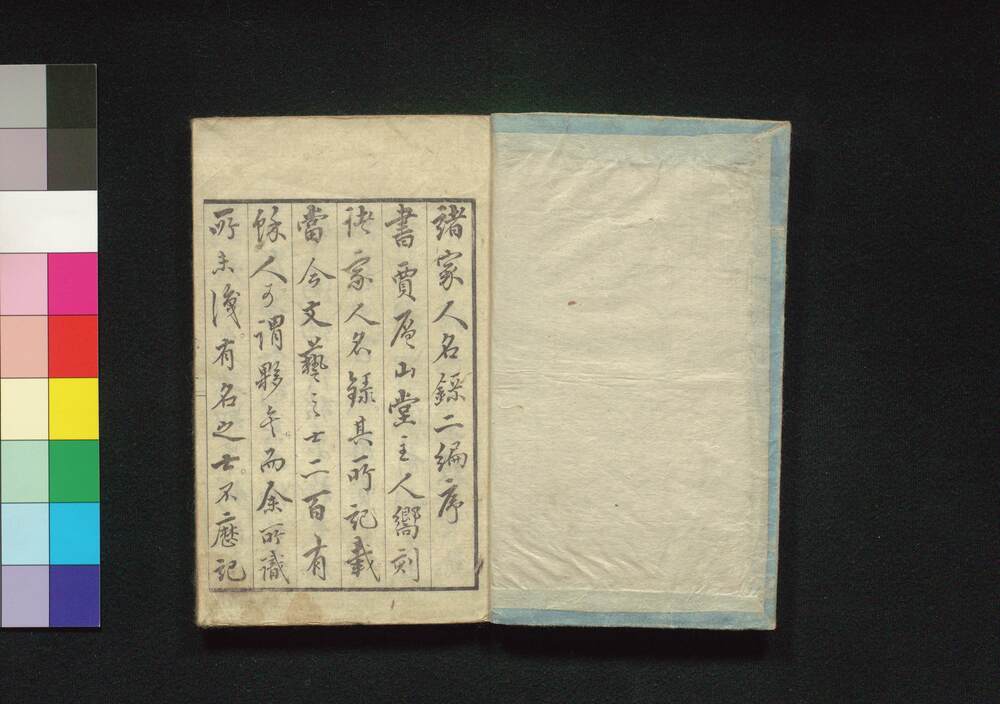 諸家人名録二編序
書賈層山堂主人嚮刻
諸家人名録其所記載
當今文藝之士二百有
餘人可謂夥矣而余所識
所未識有名之士不歴記